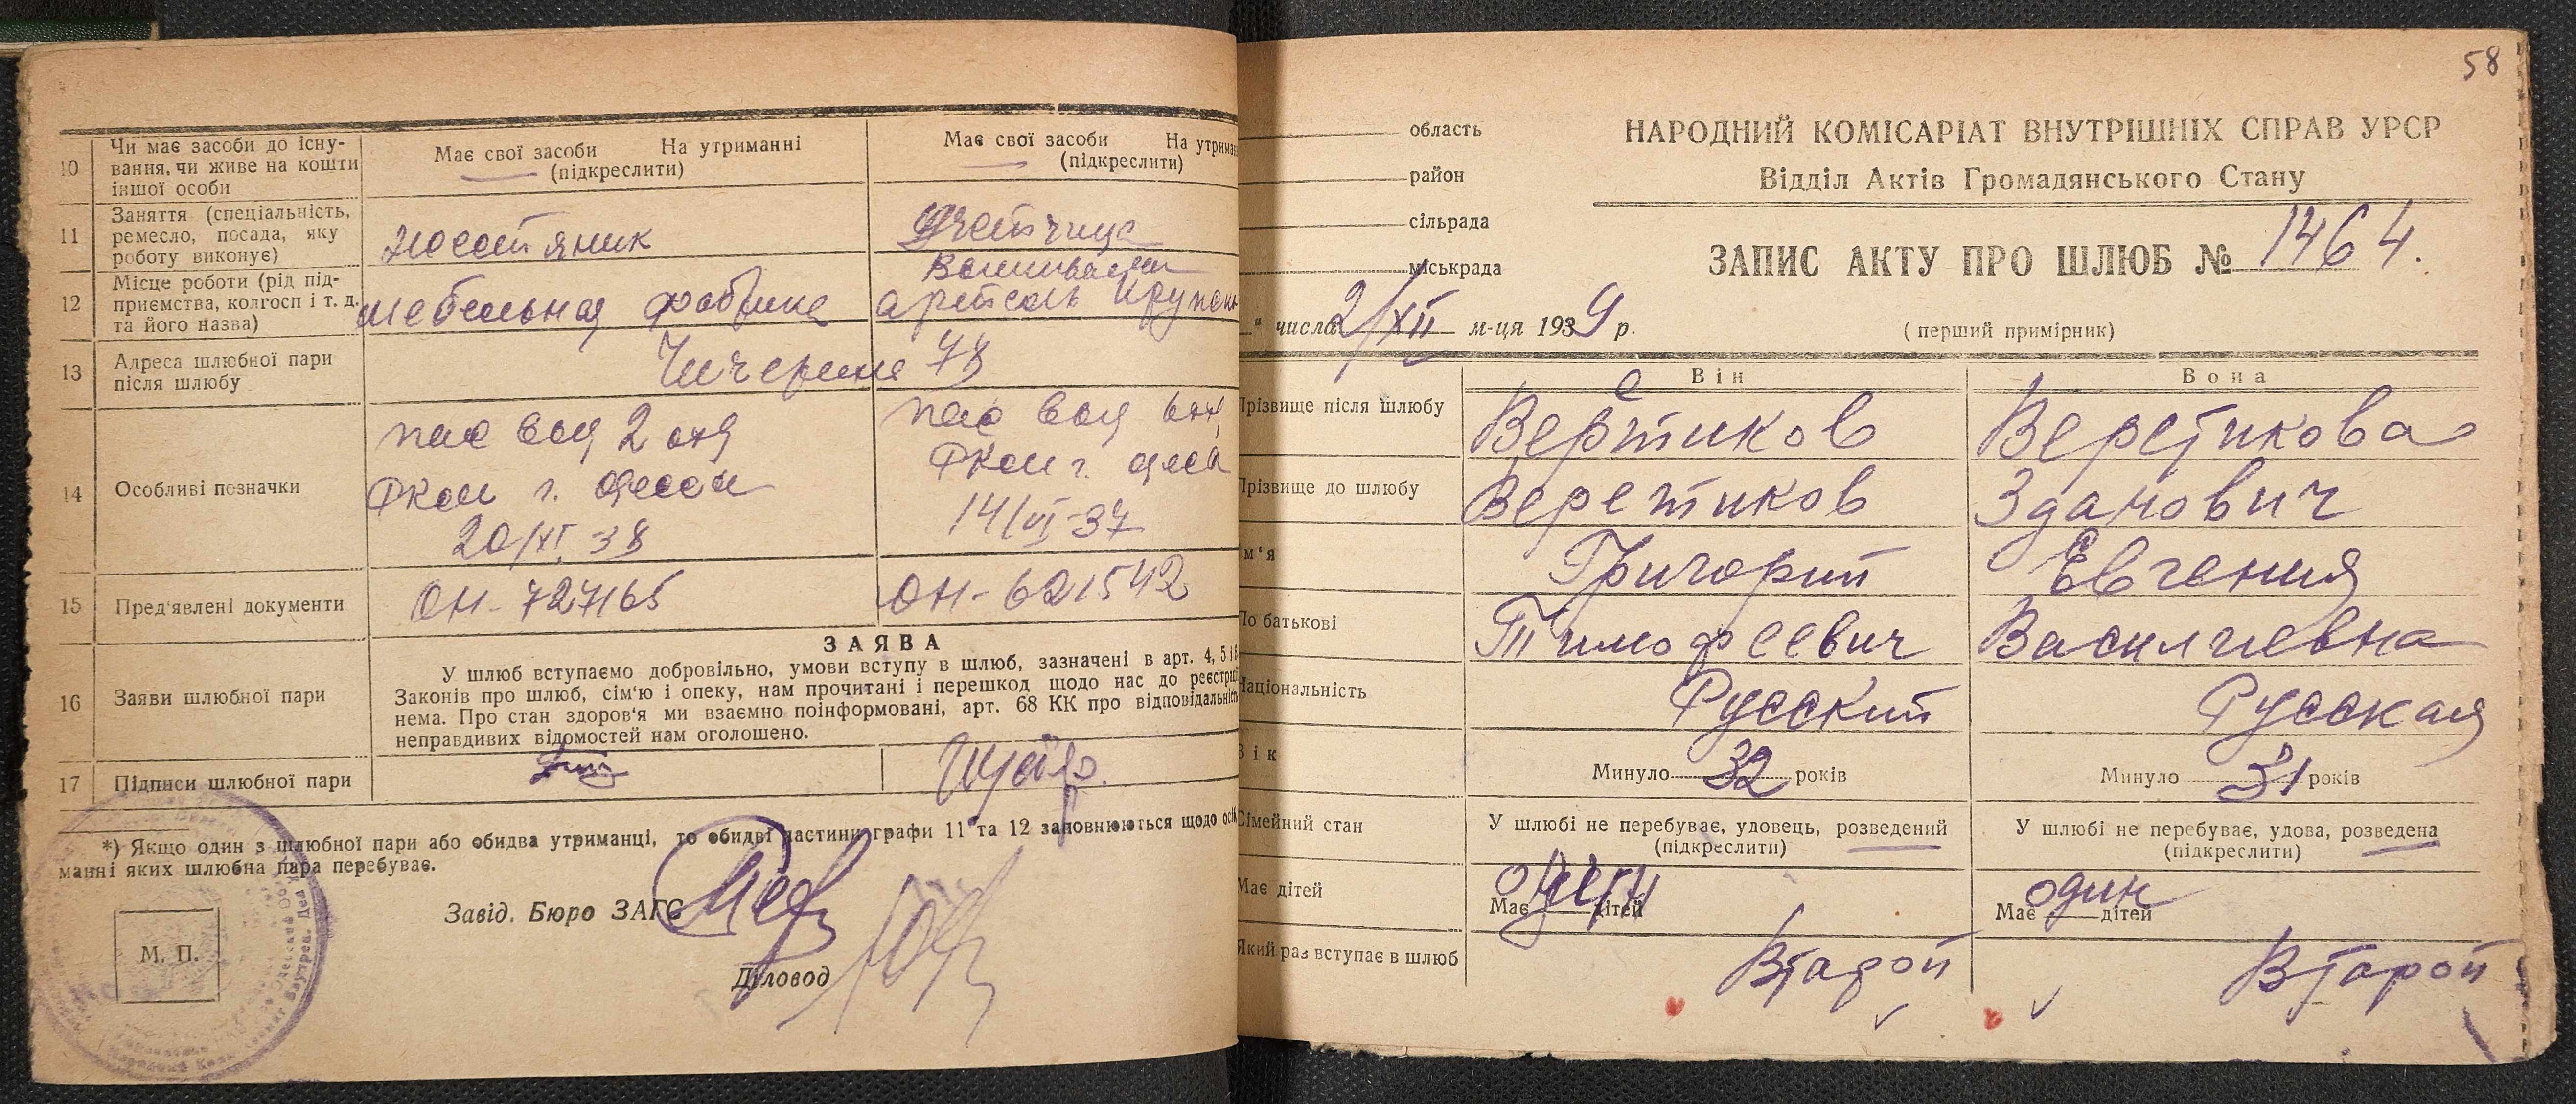 10
Чи має засоби до існу-
вання, чи живе на кошти
іншої особи
Має свої засоби На утриманні
(підкреслити)
Має свої засоби На утрима
(підкреслити)
11
Заняття (спеціальність,
ремесло, посада, яку
роботу виконує)
12
Місце роботи (рід під-
приємства, колгосп і т. д.
та його назва)
мебельная фабрика
артель
13
Адреса шлюбної пари
після шлюбу
Чичерина 78
14
Особливі позначки
2 отд
г. Одессы
20/XI 38
14/VI-37
15
Пред'явлені документи
ОН-727165
ОН-621542
16
Заяви шлюбної пари
ЗАЯВА
У шлюб вступаємо добровільно, умови вступу в шлюб, зазначені в арт. 4, 5 і 6
Законів про шлюб, сім'ю і опеку, нам прочитані і перешкод щодо нас до реєстрації
нема. Про стан здоров'я ми взаємно поінформовані, арт. 68 КК про відповідальність
неправдивих відомостей нам оголошено.
17
Підписи шлюбної пари
*) Якщо один з шлюбної пари або обидва утриманці, то обидві частини графи 11 та 12 заповнюються щодо осіб
манні яких шлюбна пара перебуває.
Завід. Бюро ЗАГС
М. П.
Діловод
58
область
район
сільрада
міськрада
НАРОДНИЙ КОМІСАРІАТ ВНУТРІШНІХ СПРАВ УРСР
Відділ Актів Громадянського Стану
ЗАПИС АКТУ ПРО ШЛЮБ № 1464.
" числа 2/XII м-ця 1939 р.
(перший примірник)
Він
Вона
Прізвище після шлюбу
Веретиков
Веретикова
Прізвище до шлюбу
Веретиков
Зданович
м'я
Григорий
Евгения
По батькові
Тимофеевич
Василиевна
Національність
Русский
Русская
Вік
Минуло 32 років
Минуло 31 років
Сімейний стан
У шлюбі не перебуває, удовець, розведений
(підкреслити)
У шлюбі не перебуває, удова, розведена
(підкреслити)
Має дітей
Має один дітей
Має один дітей
Який раз вступає в шлюб
Второй
Второй